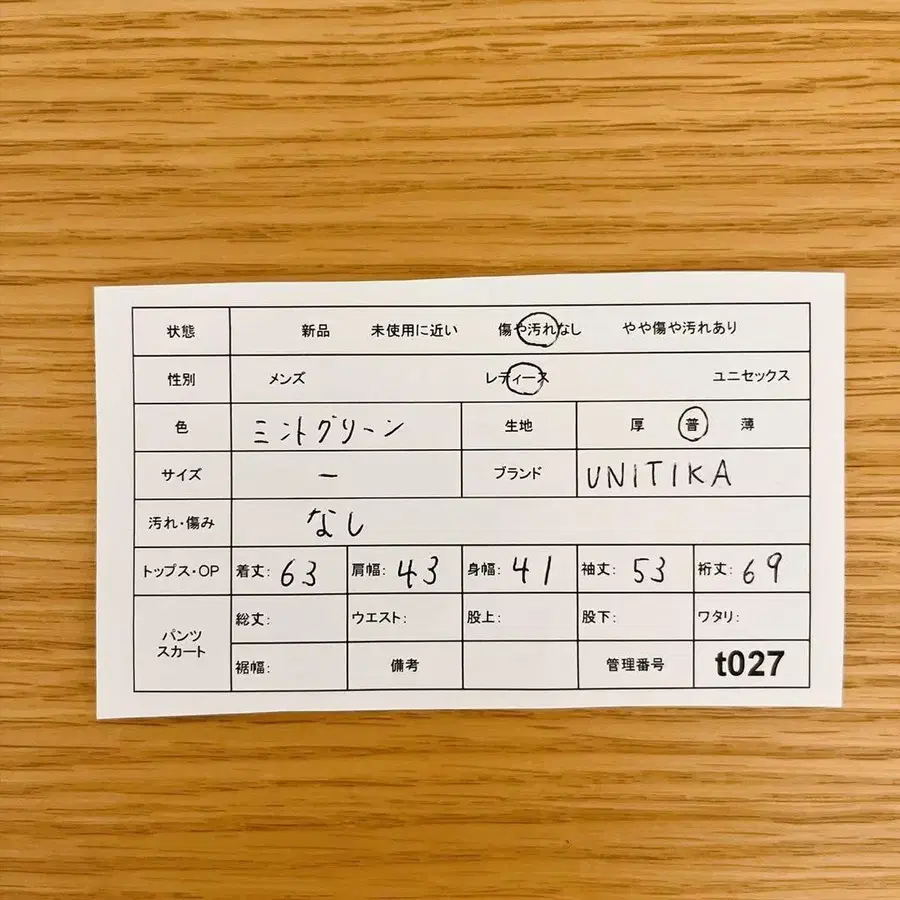 状態 新品 未使用に近い 傷や汚れなし やや傷や汚れあり
性別 メンズ レディース ユニセックス
色 ミントグリーン 生地 厚 普 薄
サイズ ー ブランド UNITIKA
汚れ・傷み なし
トップス・OP 着丈: 63 肩幅: 43 身幅: 41 袖丈: 53 裄丈: 69
パンツ スカート 総丈: ウエスト: 股上: 股下: ワタリ:
裾幅: 備考 管理番号 t027